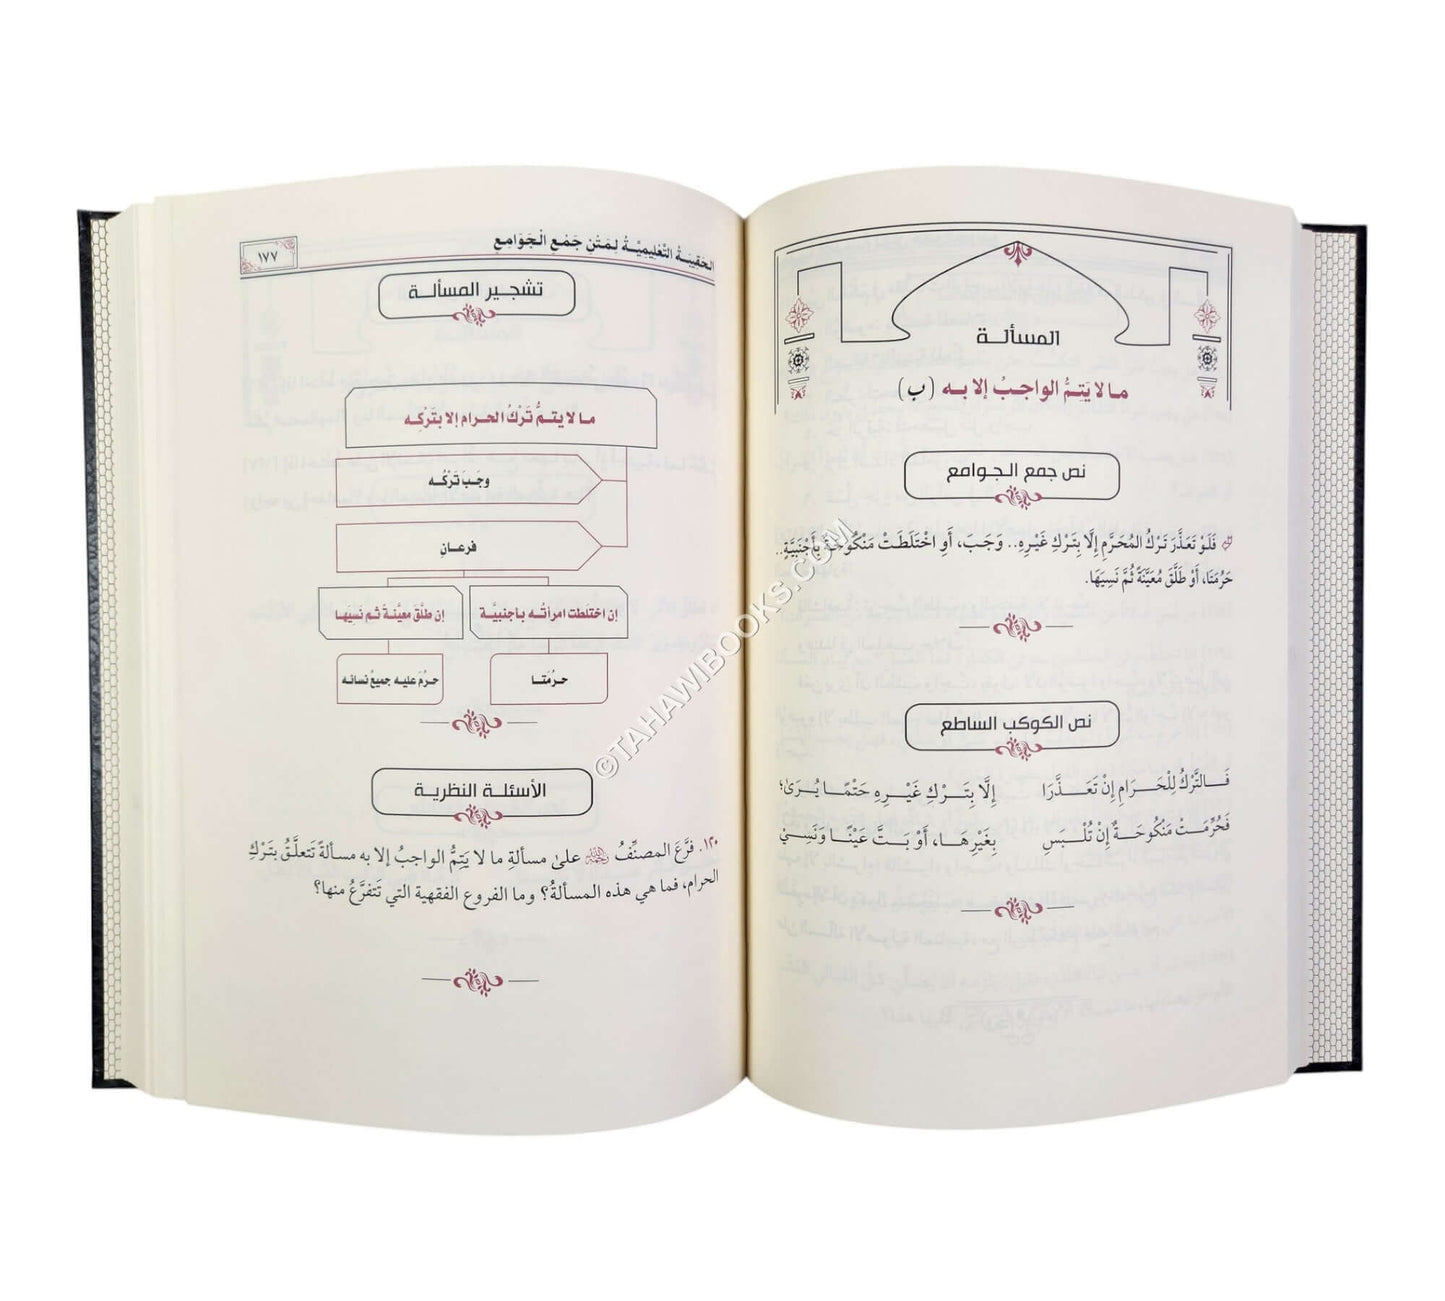 المسألة
ما لا يَتِمُّ الواجبُ إلا به (ب)
نص جمع الجوامع
فَلَوْ تَعَذَّرَ تَرْكُ المُحَرَّمِ إِلَّا بِتَرْكِ غَيْرِهِ.. وَجَبَ، أَوِ اخْتَلَطَتْ مَنْكُوحَةٌ بِأَجْنَبِيَّةٍ..
حَرُمَتَا، أَوْ طَلَّقَ مُعَيَّنَةً ثُمَّ نَسِيَهَا.
نص الكوكب الساطع
فَالتَّرْكُ لِلْحَرَامِ إِنْ تَعَذَّرَا إِلَّا بِتَرْكِ غَيْرِهِ حَتْمًا يُرَىٰ؛
فَحُرِّمَتْ مَنْكُوحَةٌ إِنْ تُلْبَسِ بِغَيْرِهَا، أَوْ بَتَّ عَيْنًا وَنَسِيْ
الحَقِيبَةُ التَّعْلِيمِيَّةُ لِمَتْنِ جَمْعِ الْجَوَامِعِ
١٧٧
تشجير المسألة
ما لا يتمُّ تَرْكُ الحرام إلا بتَرْكِه
وجَبَ تَرْكُه
فرعانِ
إن اختلَطت امرأتُه بأجنبيَّة
إن طلَّقَ معيَّنةً ثم نَسِيَها
حرُمَتا
حرُم عليه جميعُ نسائه
الأسئلة النظرية
١٢٠. فرَّعَ المصنِّفُ ﵀ علىٰ مسألةِ ما لا يَتِمُّ الواجبُ إلا به مسألةً تتعلَّقُ بتَركِ
الحرام، فما هي هذه المسألةُ؟ وما الفروع الفقهية التي تَتفرَّعُ منها؟
©TAHAWIBOOKS.COM